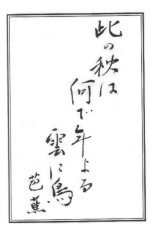 此の秋は
何で年よる
雲に鳥
芭蕉